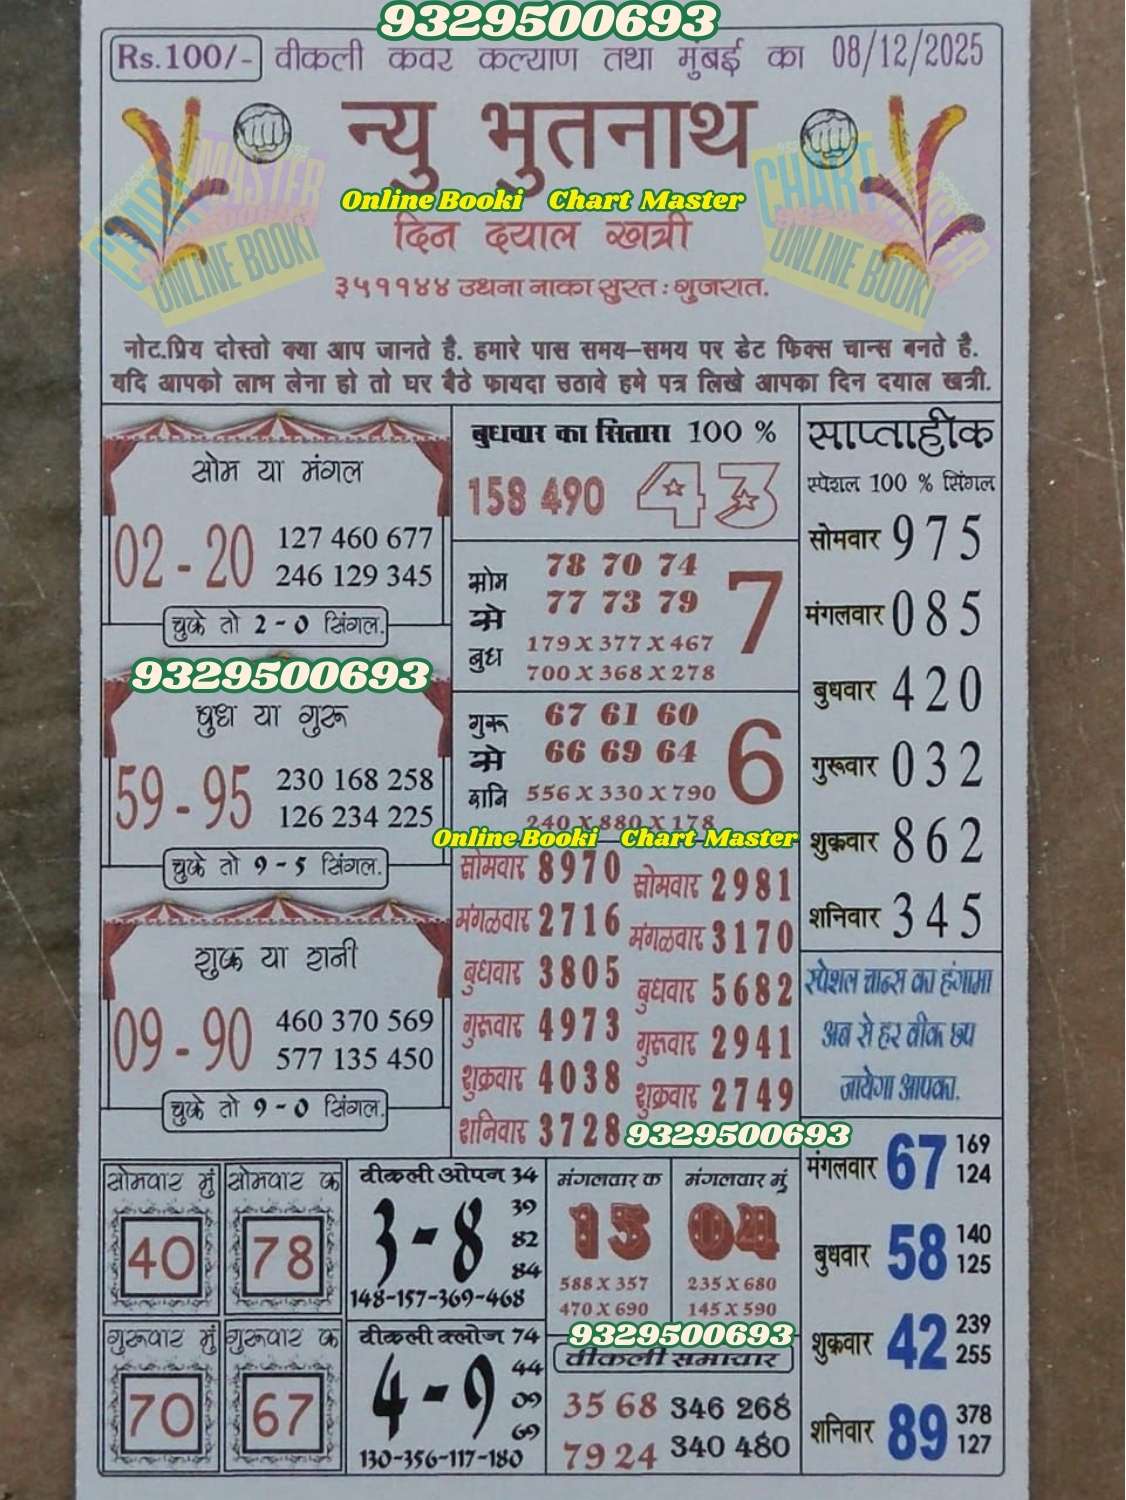 9329500693
Rs.100/- वीकली कवर कल्याण तथा मुंबई का 08/12/2025
न्यु भुतनाथ
Online Booki Chart Master
CHART MASTER
ONLINE BOOKI
CHART MASTER
ONLINE BOOKI
दिन दयाल खत्री
३५११४४ उधना नाका सुरत : गुजरात.
नोट.प्रिय दोस्तो क्या आप जानते है. हमारे पास समय-समय पर डेट फिक्स चान्स बनते है.
यदि आपको लाभ लेना हो तो घर बैठे फायदा उठावे हमे पत्र लिखे आपका दिन दयाल खत्री.
सोम या मंगल
02 - 20
127 460 677
246 129 345
चुके तो 2-0 सिंगल.
9329500693
बुध या गुरू
59 - 95
230 168 258
126 234 225
चुके तो 9-5 सिंगल.
शुक्र या शनी
09 - 90
460 370 569
577 135 450
चुके तो 9-0 सिंगल.
बुधवार का सितारा 100 %
158 490 43
सोम से बुध
78 70 74
77 73 79
179 X 377 X 467
700 X 368 X 278
7
गुरू से शनि
67 61 60
66 69 64
556 X 330 X 790
240 X 880 X 178
6
Online Booki Chart Master
सोमवार 8970
मंगळवार 2716
बुधवार 3805
गुरूवार 4973
शुक्रवार 4038
शनिवार 3728
सोमवार 2981
मंगळवार 3170
बुधवार 5682
गुरूवार 2941
शुक्रवार 2749
9329500693
साप्ताहीक
स्पेशल 100 % सिंगल
सोमवार 975
मंगलवार 085
बुधवार 420
गुरूवार 032
शुक्रवार 862
शनिवार 345
स्पेशल चान्स का हंगामा
अब से हर वीक छप
जायेगा आपका.
सोमवार मुं
40
सोमवार क
78
गुरूवार मुं
70
गुरूवार क
67
वीकली ओपन 34
3-8
39
82
84
148-157-369-468
वीकली क्लोज 74
4-9
44
09
69
130-356-117-180
मंगलवार क
13
588 X 357
470 X 690
मंगलवार मुं
04
235 X 680
145 X 590
9329500693
वीकली समाचार
35 68 346 268
79 24 340 480
मंगलवार 67 169
124
बुधवार 58 140
125
शुक्रवार 42 239
255
शनिवार 89 378
127